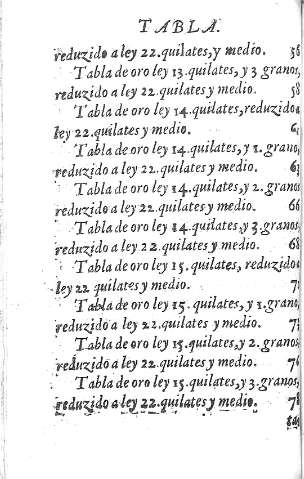 TABLA.
reduzido a ley 22. quilates, y medio. 56
Tabla de oro ley 13. quilates, y 3 granos,
reduzido a ley 22. quilates y medio. 58
Tabla de oro ley 14. quilates, reduzido a
ley 22. quilates y medio.
Tabla de oro ley 14. quilates, y 1. grano,
reduzido a ley 22. quilates y medio. 63
Tabla de oro ley 14. quilates, y 2. granos
reduzido a ley 22. quilates y medio. 66
Tabla de oro ley 14. quilates, y 3. granos,
reduzido a ley 22. quilates y medio. 68
Tabla de oro ley 15. quilates, reduzido a
ley 22 quilates y medio.
Tabla de oro ley 15. quilates, y 1. grano,
reduzido a ley 22. quilates y medio.
Tabla de oro ley 15. quilates, y 2. granos,
reduzido a ley 22. quilates y medio. 76
Tabla de oro ley 15. quilates, y 3. granos,
reduzido a ley 22. quilates y medio. 78